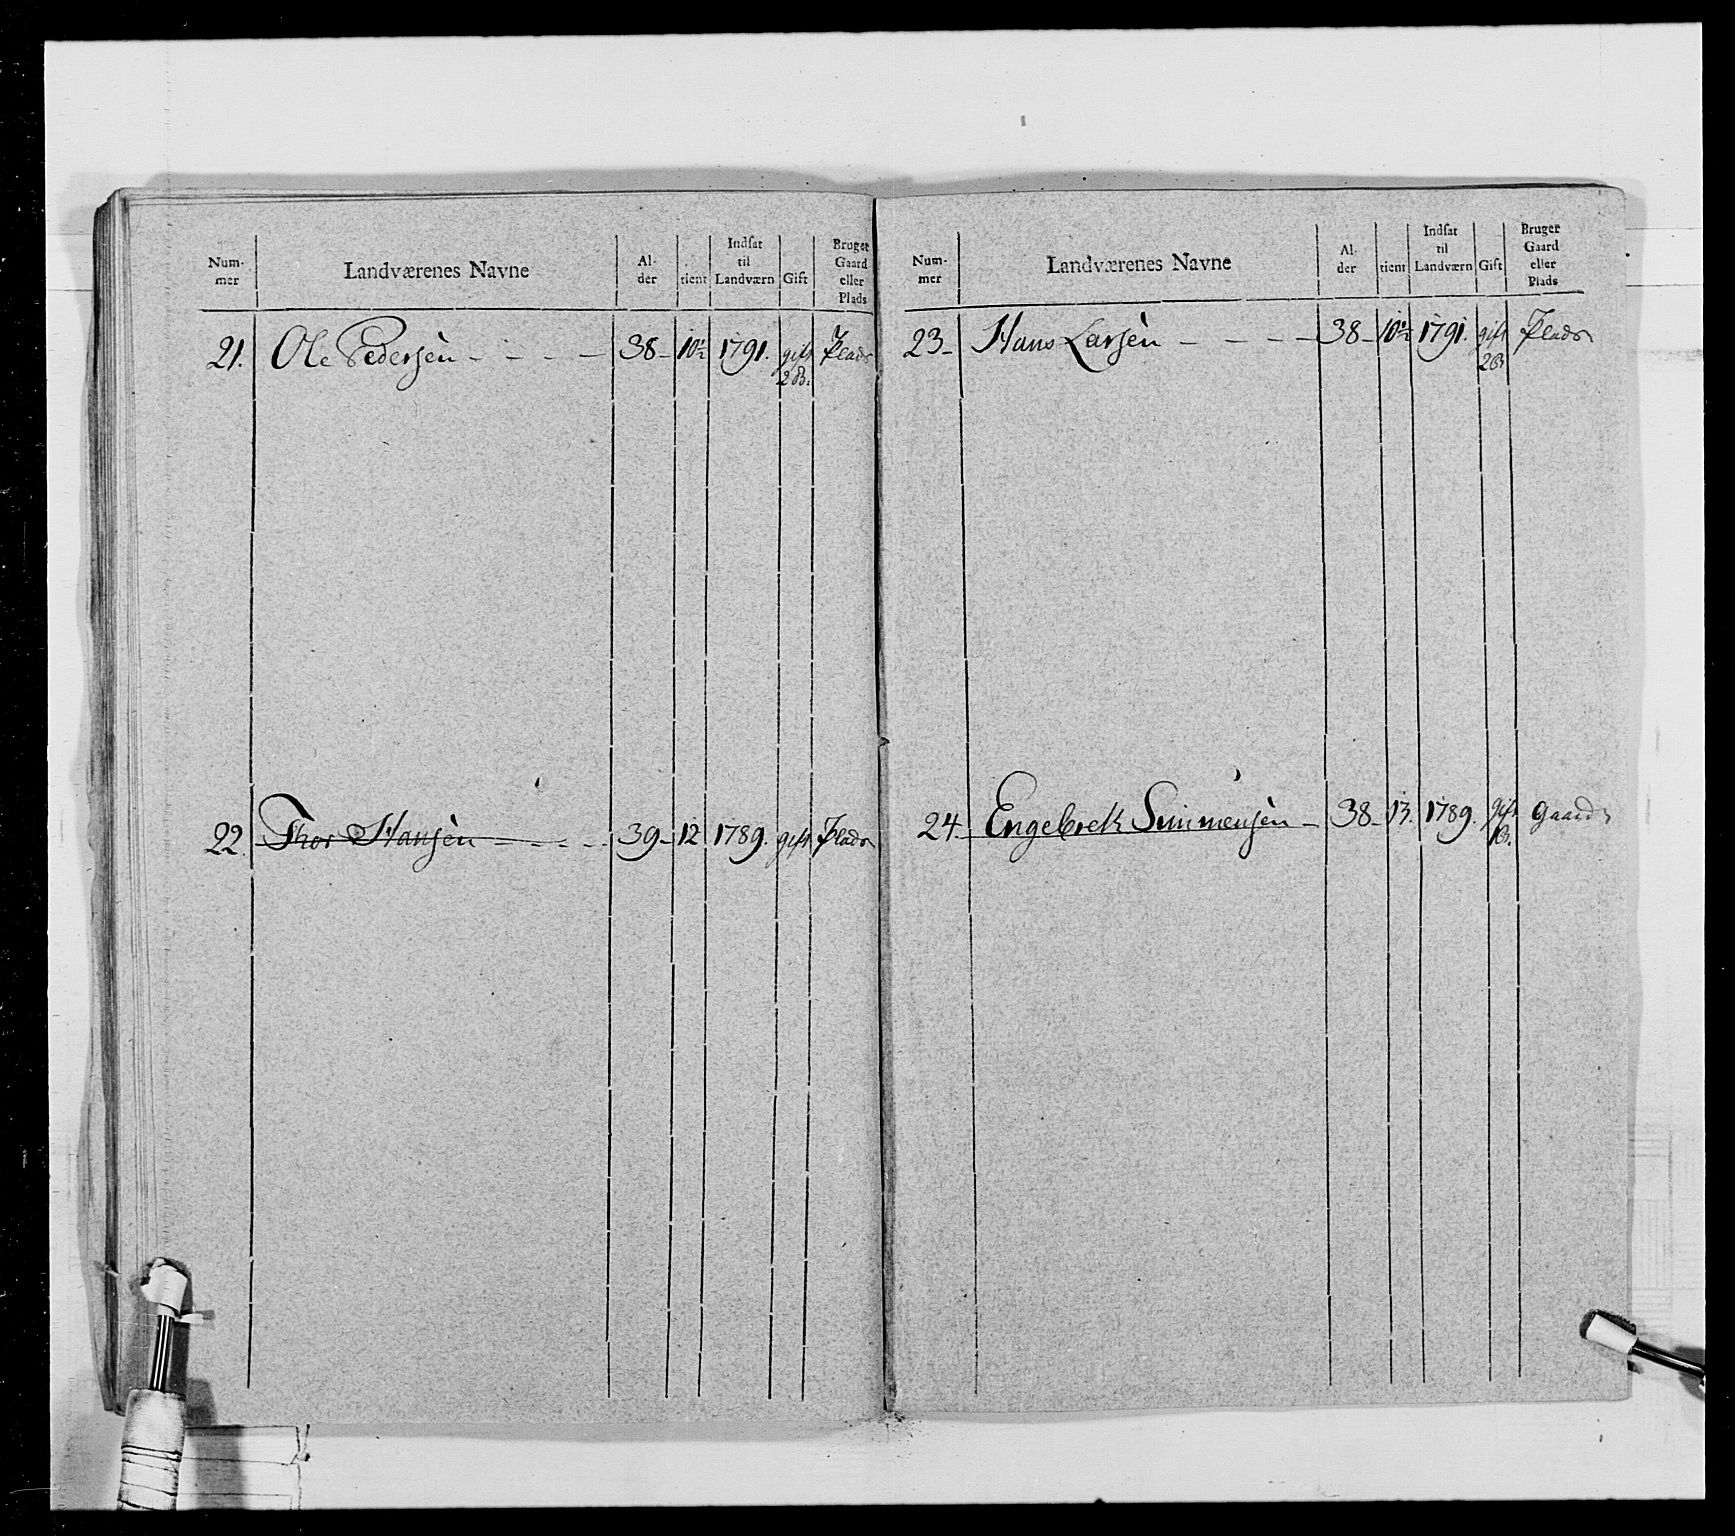 Num-
mer
Landværenes Navne
Al-
der
tient
Indsat
til
Landværn
Gift
Bruger
Gaard
eller
Plads
21. Ole Pedersen - - - - 38 - 10½ 1791. gift Plads
2 B.
22. Thor Hansen - - - - 39 - 12 1789. gift Plads
Num-
mer
Landværenes Navne
Al-
der
tient
Indsat
til
Landværn
Gift
Bruger
Gaard
eller
Plads
23 - Hans Larsen - - - - 38 - 10½ 1791. gift Plads
2 B
24. Engebrek Simmensen - 38 - 13. 1789. gift Gaard
1 B.